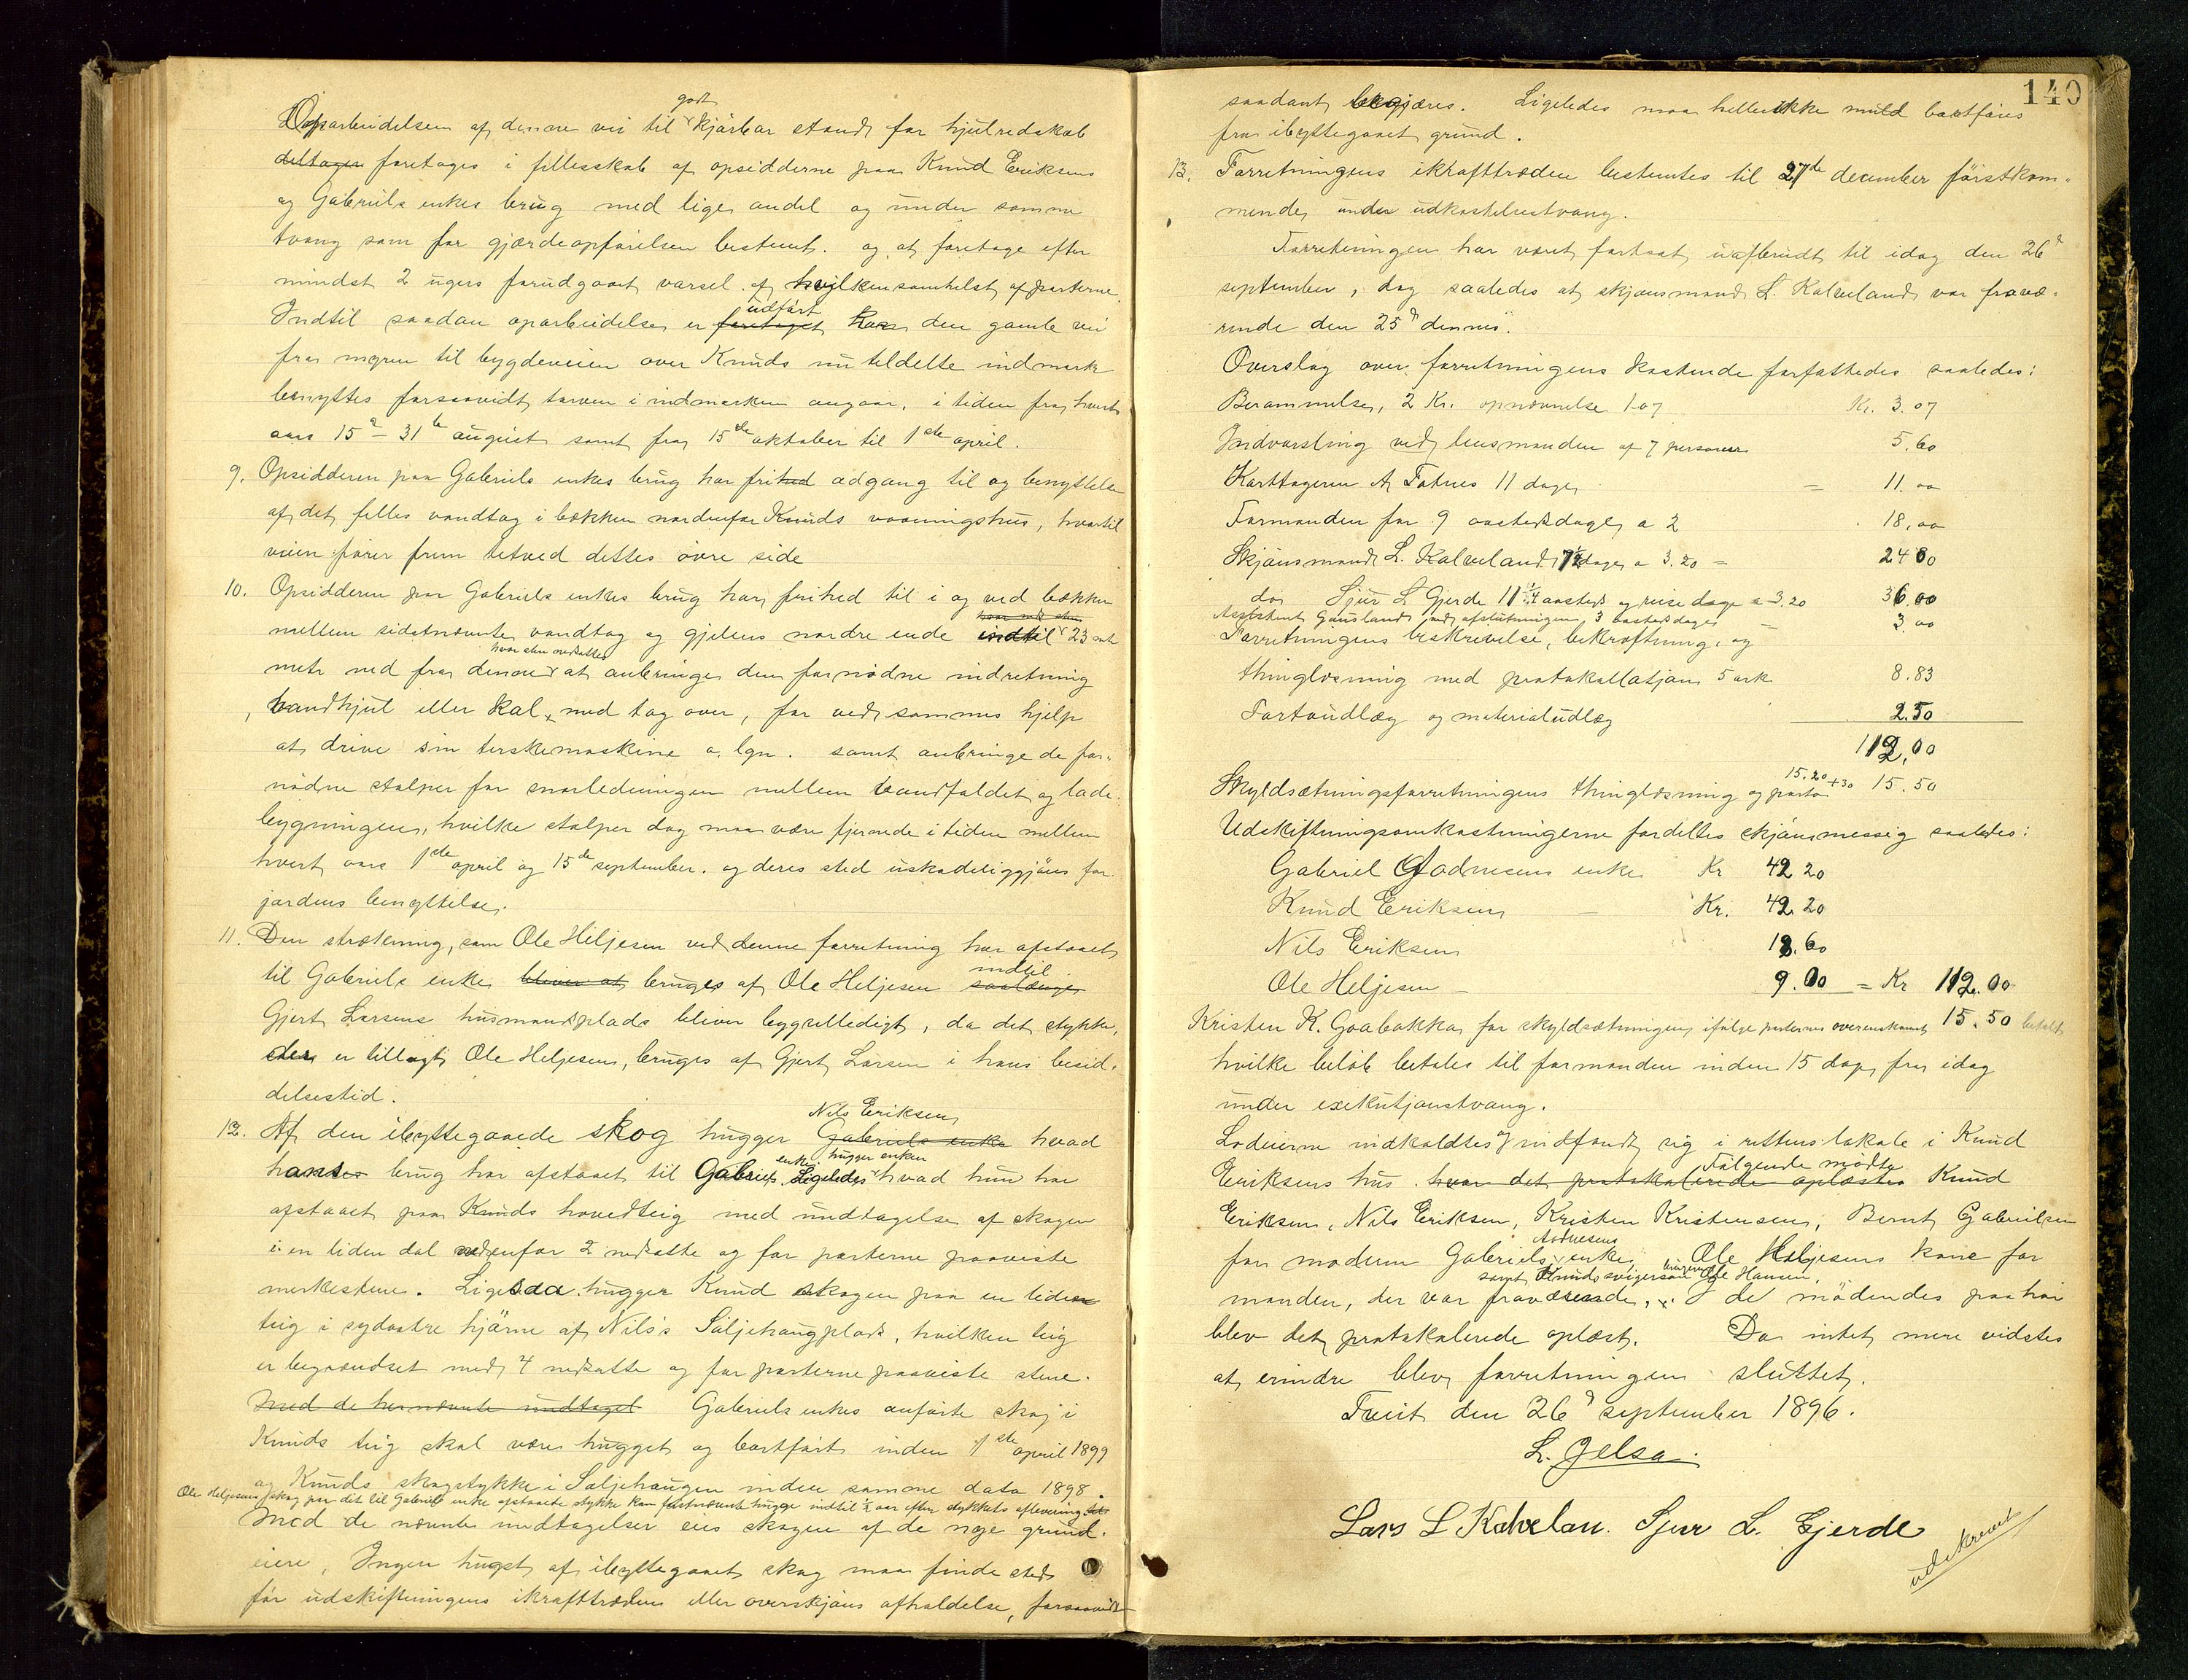 godt
Oparbeidelsen af denne vei til kjørbar stand for hjulredskab
deltager foretages i fellesskab af opsidderne paa Knud Eriksens
og Gabriels enkes brug med lige andel og under samme
tvang som for gjærdeopførelsen bestemt. og at foretage efter
mindst 2 ugers forudgaaet varsel af hvilkensomhelst af parterne.
udført
Indtil saadan oparbeidelse er foretaget kan den gamle vei
fra myren til bygdeveien over Knuds nu tildelte indmark
benyttes forsaavidt tarven i indmarken angaar, i tiden fra hvert
aars 15de – 31te august samt fra 15de oktober til 1ste april.
9. Opsidderen paa Gabriels enkes brug har frihed adgang til og benyttelse
af det felles vandtag i bækken nordenfor Knuds vaaningshus, hvortil
veien fører frem tetved dettes øvre side
10. Opsidderen paa Gabriels enkes brug har frihed til i og ved bækken
hvor ned sten
mellem sidstnævnte vandtag og gjelens nordre ende indtil 23
hvor sten nedsattes
metr ned fra denne at anbringe den fornødne indretning
, vandhjul eller kal, med tag over, for ved sammes hjelp
at drive sin terskemaskine o. lgn. samt anbringe de for-
nødne stolper for snorledningen mellem vandfaldet og lade-
bygningen, hvilke stolper dog maa være fjernede i tiden mellem
hvert aars 1ste april og 15de september. og deres sted uskadeliggjøres for
jordens benyttelse.
11. Den strækning, som Ole Heljesen ved denne forretning har afstaaet
indtil
til Gabriels enke bliver at bruges af Ole Heljesen saalænge
Gjert Larsens husmandsplads bliver byggselledigt, da det stykke,
der er tillagt Ole Heljesen, bruges af Gjert Larsen i hans besid-
delsestid.
Nils Eriksen
12. Af den ibyttegaaede skog hugger Gabriels enke hvad
enke hugger enken
hans brug har afstaaet til Gabriels. Ligeledes hvad hun har
afstaaet paa Knuds hovedteig med undtagelse af skogen
i en liden dal nedenfor 2 nedsatte og for parterne paaviste
merkestene. Ligesaa hugger Knud skogen paa en liden
teig i sydøstre hjørne af Nils's Saljehaugplads, hvilken teig
er begrændset med 4 nedsatte og for parterne paaviste stene.
Med de hernævnte undtagel Gabriels enkes anførte skog i
Knuds teig skal være hugget og bortført inden 1ste april 1899
og Knuds skogstykke i Saljehaugen inden samme dato 1898.
Ole Heljesens skog paa det til Gabriels enke afstaaede stykke kan førstnævnte hugge indtil ½ aar efter stykkets aflevering
Med de nævnte undtagelser eies skogen af de nye grund-
eiere. Ingen hugst af ibyttegaaet skog maa finde sted
før udskiftningens ikrafttræden eller overskjøns afholdelse, forsaavidt
140
saadant begjæres. Ligeledes maa heller ikke muld bortføres
fra ibyttegaaet grund.
13. Forretningens ikrafttræden bestemtes til 27de december førstkom-
mende under udkastelsestvang.
Forretningen har været fortsat uafbrudt til idag den 26de
september, dog saaledes at skjønsmand L. Kalveland var fravæ-
rende den 25de dennes.
Overslag over forretningens kostende forfattedes saaledes:
Berammelse, 2 Kr. opnævnelse 1.07 Kr. 3.07
Indvarsling ved lensmanden af 7 personer 5.60
Karttageren A. Fotnes 11 dage = 11.00
Formanden for 9 aastedsdage a 2 18.00
Skjønsmand L. Kalveland 7½ dage a 3.20 = 24 00
do Sjur L Gjerde 11¼ aasteds og reise dage a 3.20 36.00
Assistent Gausland ved afslutningen 3 aastedsdage – 3.00
Forretningens beskrivelse, bekræftning, og
thinglæsning med protokollatjon 5 ark 8.83
Portoudlæg og materialudlæg 2.50
112,00
15.20 + 30
Skyldsætningsforretningens thinglæsning og porto 15.50
Udskiftningsomkostningerne fordeltes skjønsmessig saaledes:
Gabriel Aadnesens enke Kr 42 20
Knud Eriksen – Kr. 42.20
Nils Eriksen 18.60
Ole Heljesen – 9.00 = Kr 112.00
Kristen K. Goabakka for skyldsætningen ifølge parternes overenskomst 15.50 betalt
hvilke beløb betales til formanden inden 15 dage fra idag
under exekutjonstvang.
Lodeierne indkaldtes og indfandt sig i rettens lokale i Knud
Følgende mødte
Eriksens hus. hvor det protokolerede oplæstes Knud
Eriksen, Nils Eriksen, Kristen Kristensen, Bernt Gabrielsen
Aadnesens
for moderen Gabriels enke, Ole Heljesens kone for
samt Knuds svigersøn Ole Hansen,
manden, der var fraværende, . I de mødendes paahør
blev det protokolerede oplæst. Da intet mere vidstes
at erindre blev forretningen sluttet.
Tveit den 26de september 1896.
L. Jelsa.
Lars L Kalvelan. Sjur L. Gjerde
udskrevet